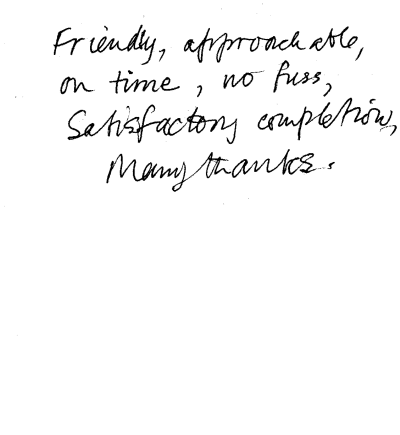 Friendly, approachable,
on time, no fuss,
Satisfactory completion,
Many thanks.